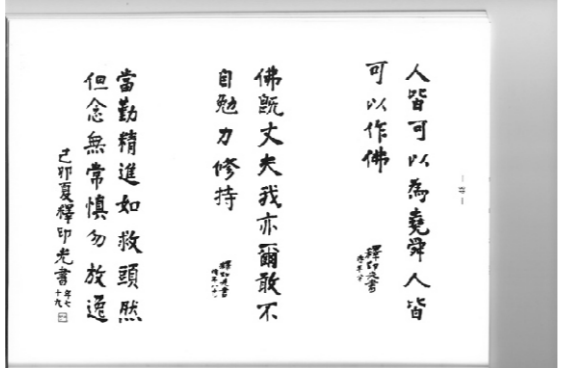 人皆可以為堯舜人皆
可以作佛
釋印光書
佛既丈夫我亦爾敢不
自勉力修持
釋印光書
當勤精進如救頭然
但念無常慎勿放逸
己卯夏釋印光書
年七十九